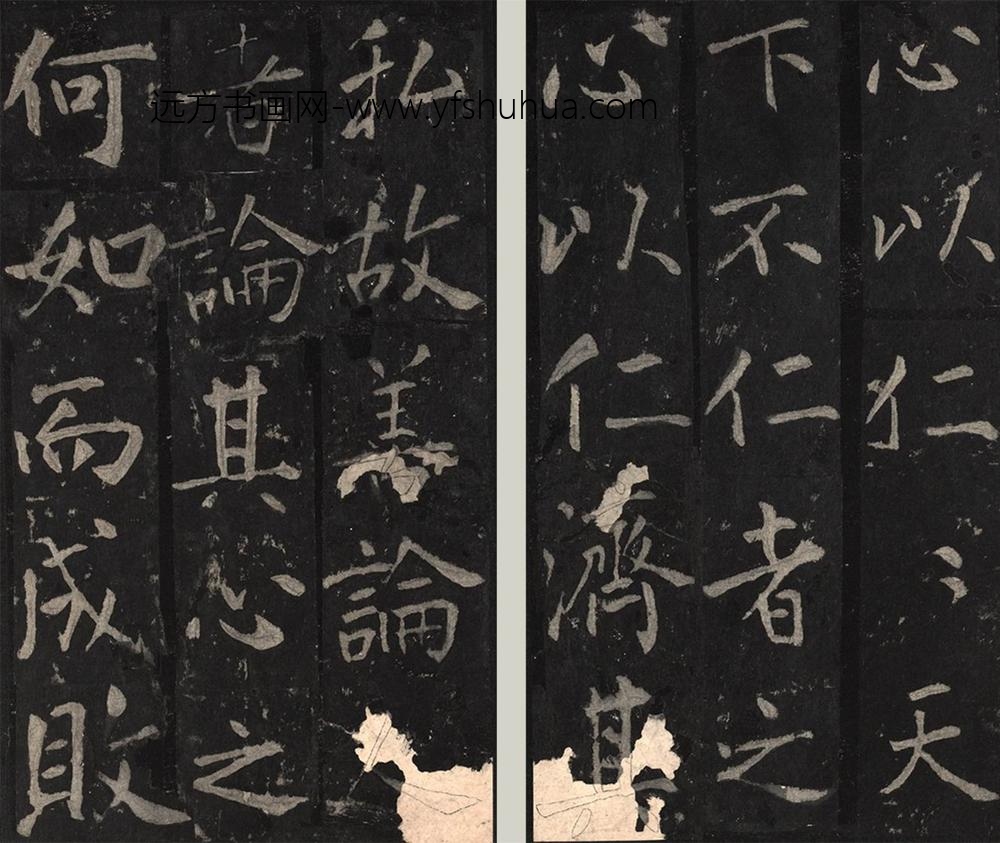 心以仁〻天
下不仁者之
心以仁濟其
私故善論
者論其心之
何如而成敗
远方书画网-www.yfshuhua.com